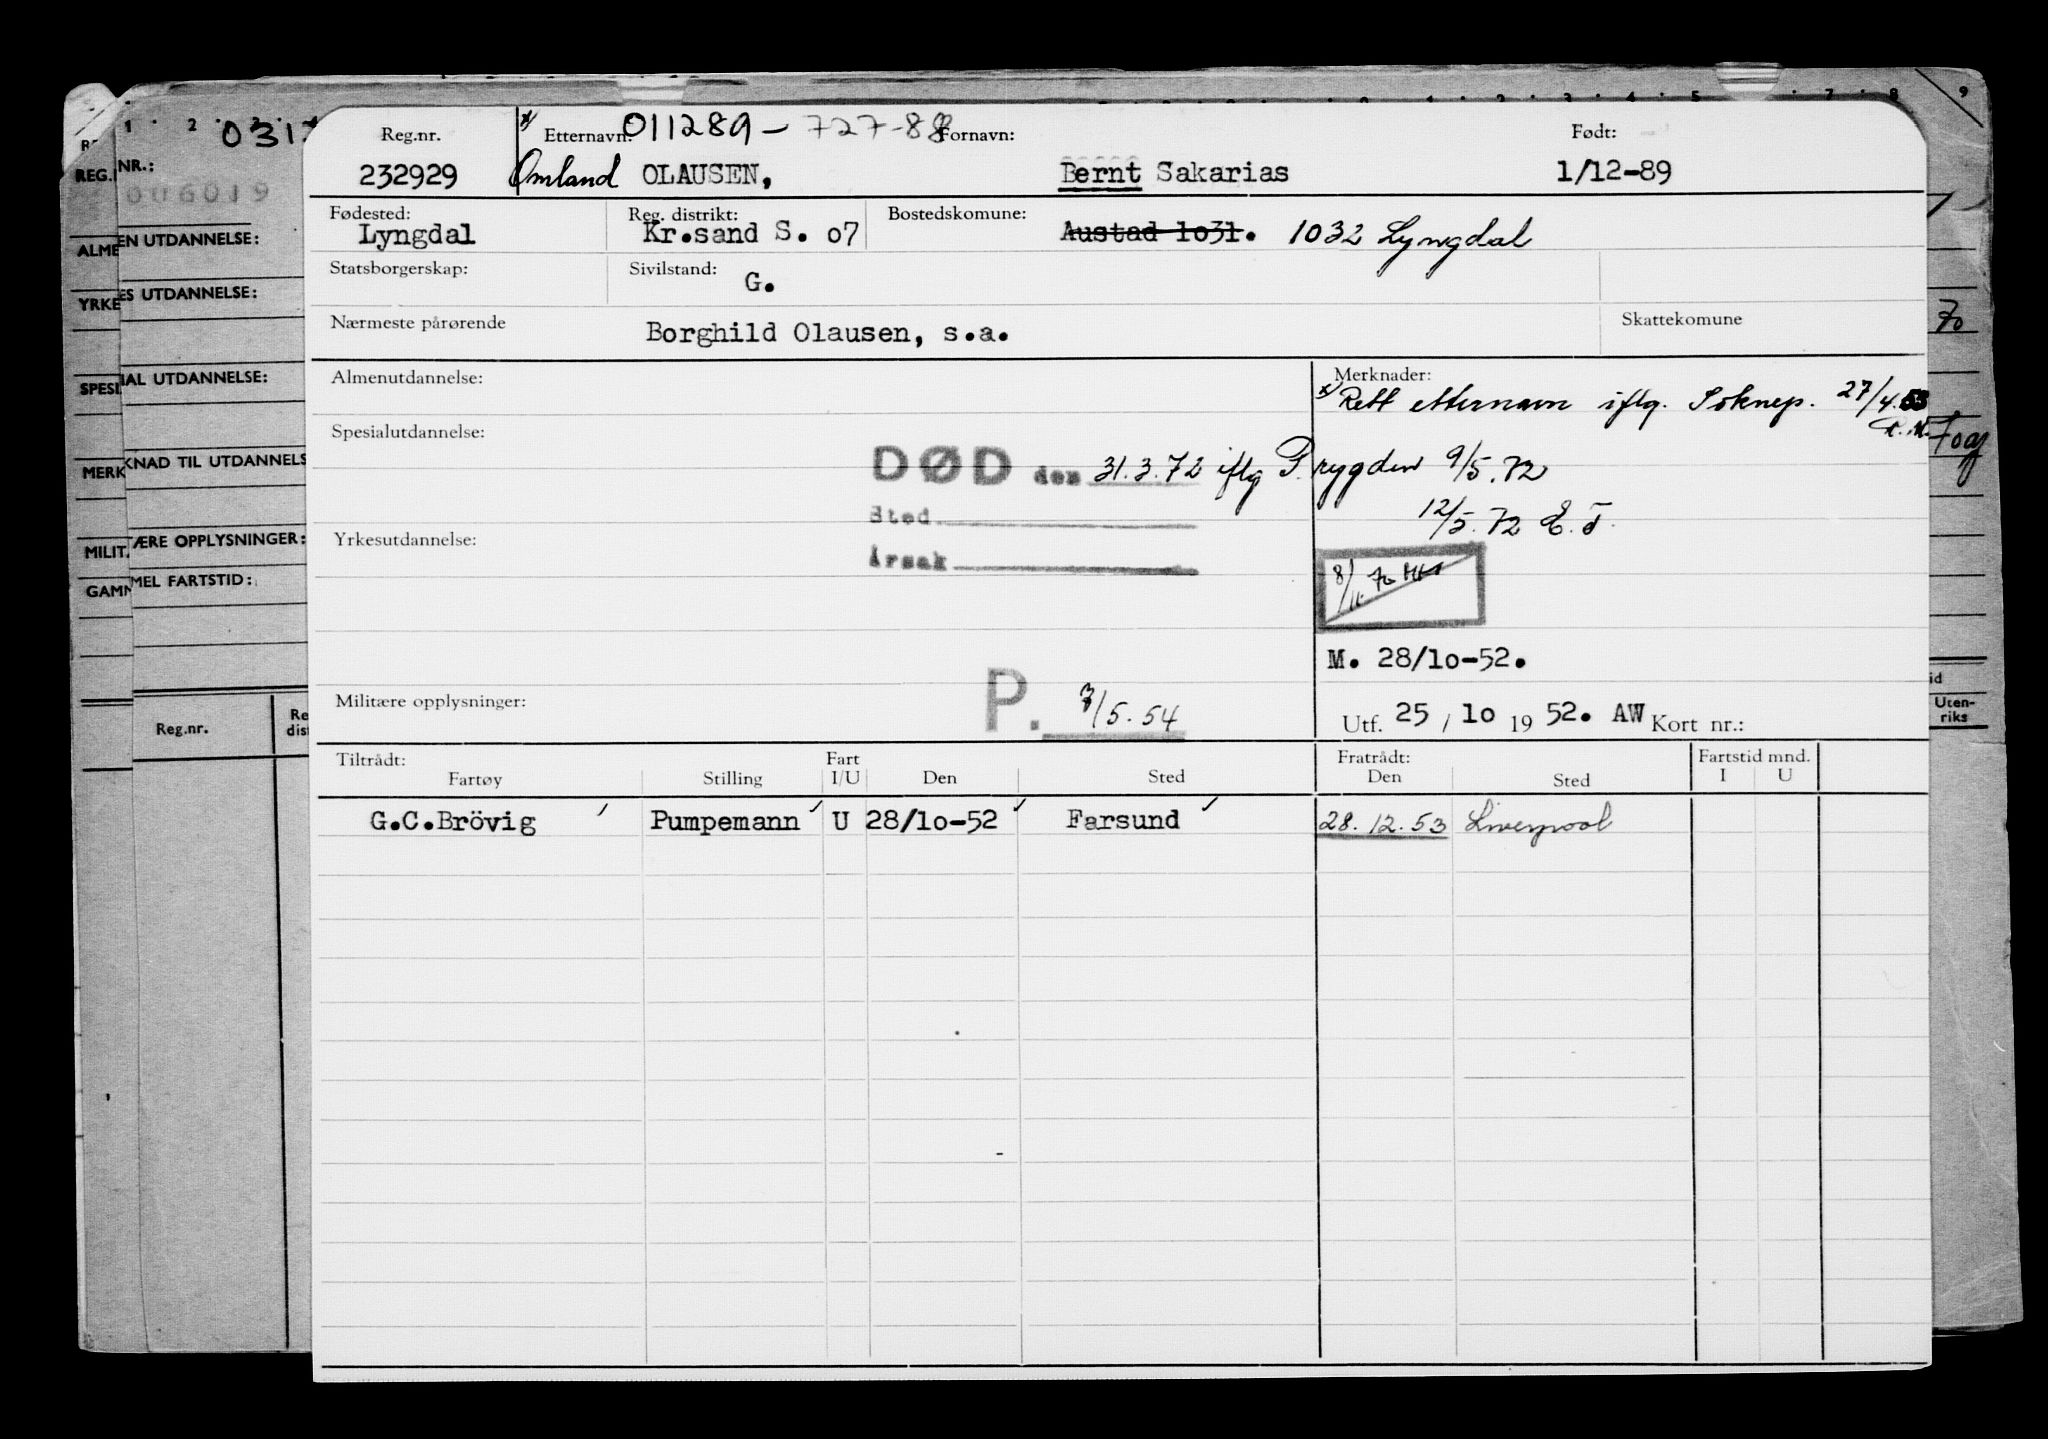 1 2 3 1 2 3 4 5 7 8 9
0313
REG.NR.:
006019
ALMEN UTDANNELSE:
YRKES UTDANNELSE:
SPESIAL UTDANNELSE:
MERKNAD TIL UTDANNELS
MILITÆRE OPPLYSNINGER:
GAMMEL FARTSTID:
Reg.nr. Re dist
70
Uten-
riks
Reg.nr. x) Etternavn: 011289-727-88 Fornavn: Født:
232929 Omland OLAUSEN, Bernt Sakarias 1/12-89
Fødested: Reg. distrikt: Bostedskomune:
Lyngdal Kr.sand S. o7 Austad 1o31. 1032 Lyngdal
Statsborgerskap: Sivilstand:
G.
Nærmeste pårørende Borghild Olausen, s.a. Skattekomune
Almenutdannelse: Merknader:
x) Rett etternavn iflg. Soknep. 27/4.53
Spesialutdannelse:
DØD den 31.3.72 iflg P.rygden 9/5.72
Sted 12/5.72 E.T.
Yrkesutdannelse: Årsak
8/11.70
M. 28/1o-52.
Militære opplysninger: P. 7/5.54
Utf. 25 / 1o 19 52. AW Kort nr.:
Tiltrådt: Fart Fratrådt: Fartstid mnd.
Fartøy Stilling I/U Den Sted Den Sted I U
G.C.Brövig Pumpemann U 28/1o-52 Farsund 28.12.53 Liverpool